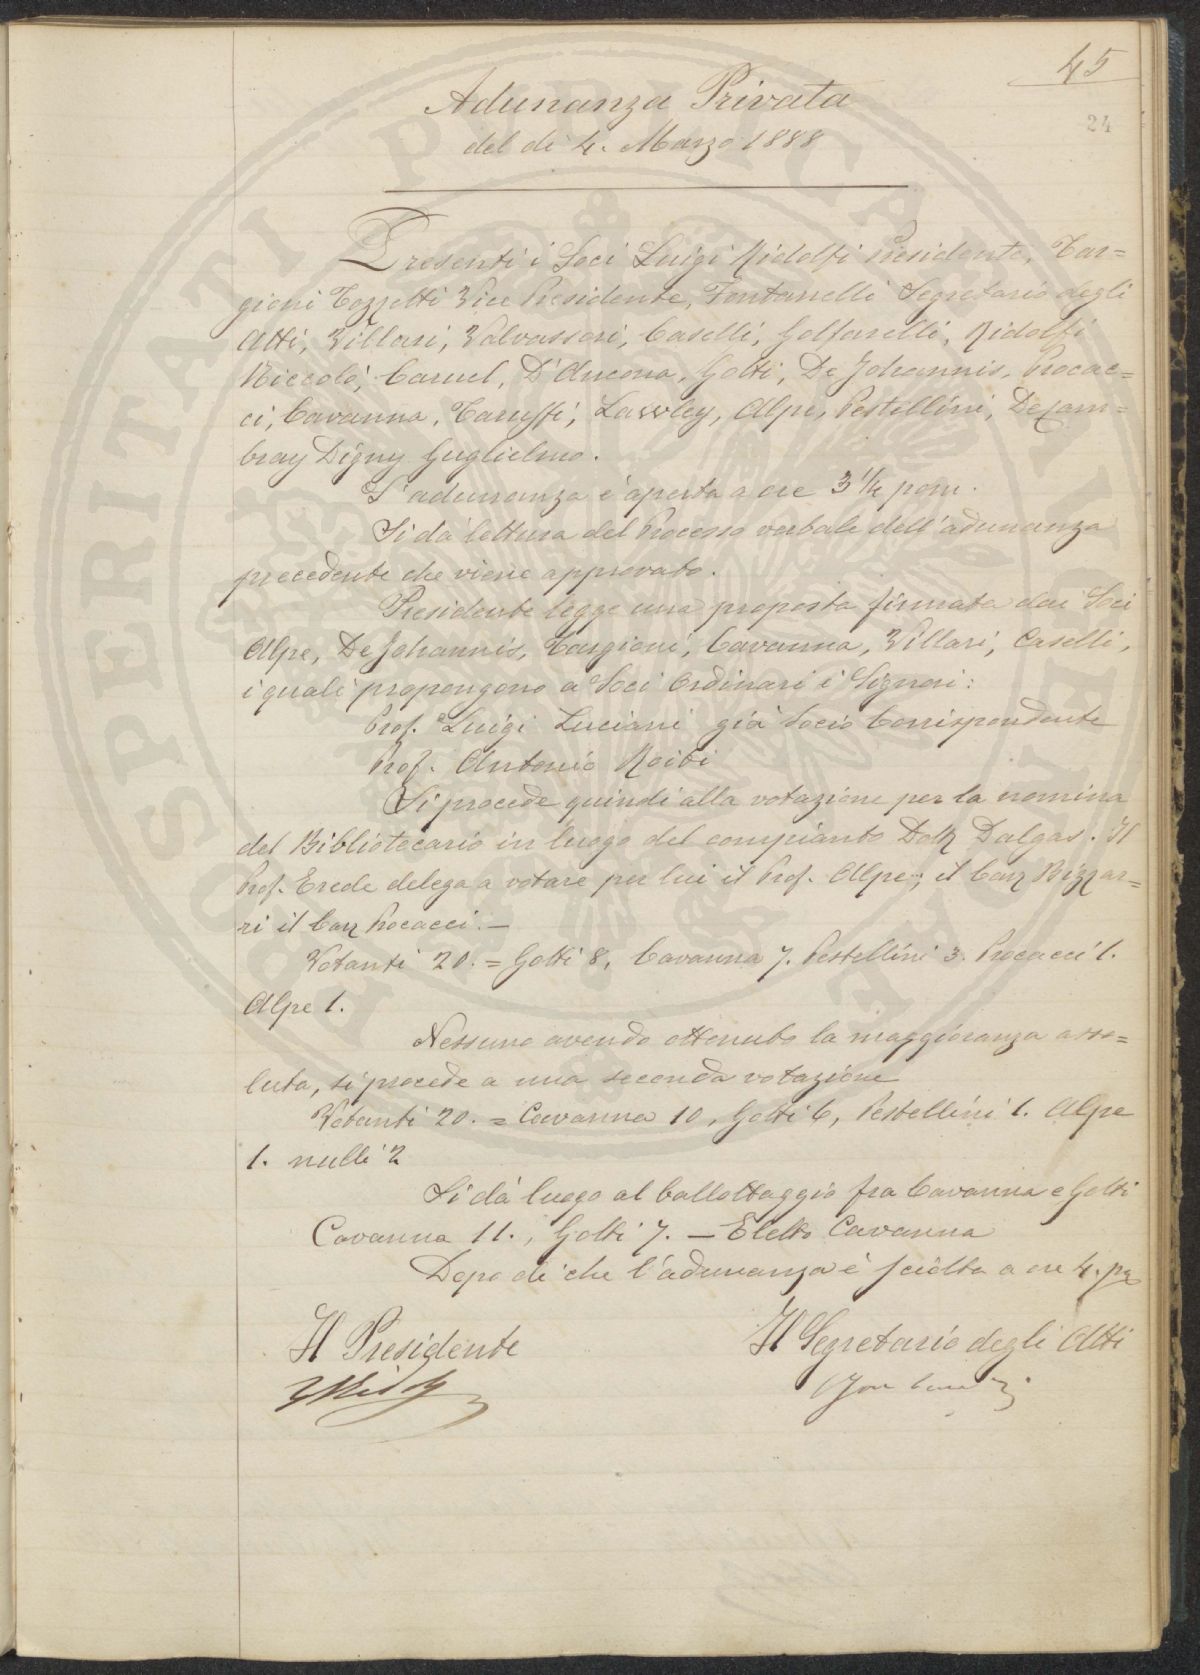 45
24
Adunanza Privata
del dì 4. Marzo 1888
Presenti i Soci Luigi Ridolfi Presidente, Tar=
gioni Tozzetti Vice Presidente, Fontanelli Segretario degli
Atti, Villari, Valvassori, Caselli, Golfarelli, Ridolfi
Niccolò, Caruel, D'Ancona, Gotti, De Johannis, Procac=
ci, Cavanna, Taruffi, Lawley, Alpe, Pestellini, De Cam=
bray Digny Guglielmo.
L'adunanza è aperta a ore 3 1/4 pom.
Si dà lettura del Processo verbale dell'adunanza
precedente che viene approvato.
Presidente legge una proposta firmata dai Soci
Alpe, De Johannis, Targioni, Cavanna, Villari, Caselli,
i quali propongono a Soci Ordinari i Signori:
Prof. Luigi Luciani già Socio Corrispondente
Prof. Antonio Roiti
Si procede quindi alla votazione per la nomina
del Bibliotecario in luogo del compianto Dott Dalgas. Il
Prof. Erede delega a votare per lui il Prof. Alpe; il Cav Bizzar=
ri il Cav Procacci. —
Votanti 20. = Gotti 8, Cavanna 7. Pestellini 3. Procacci 1.
Alpe 1.
Nessuno avendo ottenuto la maggioranza asso=
luta, si procede a una seconda votazione
Votanti 20. = Cavanna 10, Gotti 6, Pestellini 1. Alpe
1. nulli 2
Si dà luogo al ballottaggio fra Cavanna e Gotti
Cavanna 11., Gotti 7. — Eletto Cavanna
Dopo di che l'adunanza è sciolta a ore 4. p
Il Presidente
Il Segretario degli Atti
L Ridolfi
PROSPERITATI PUBLICAE AUGENDAE